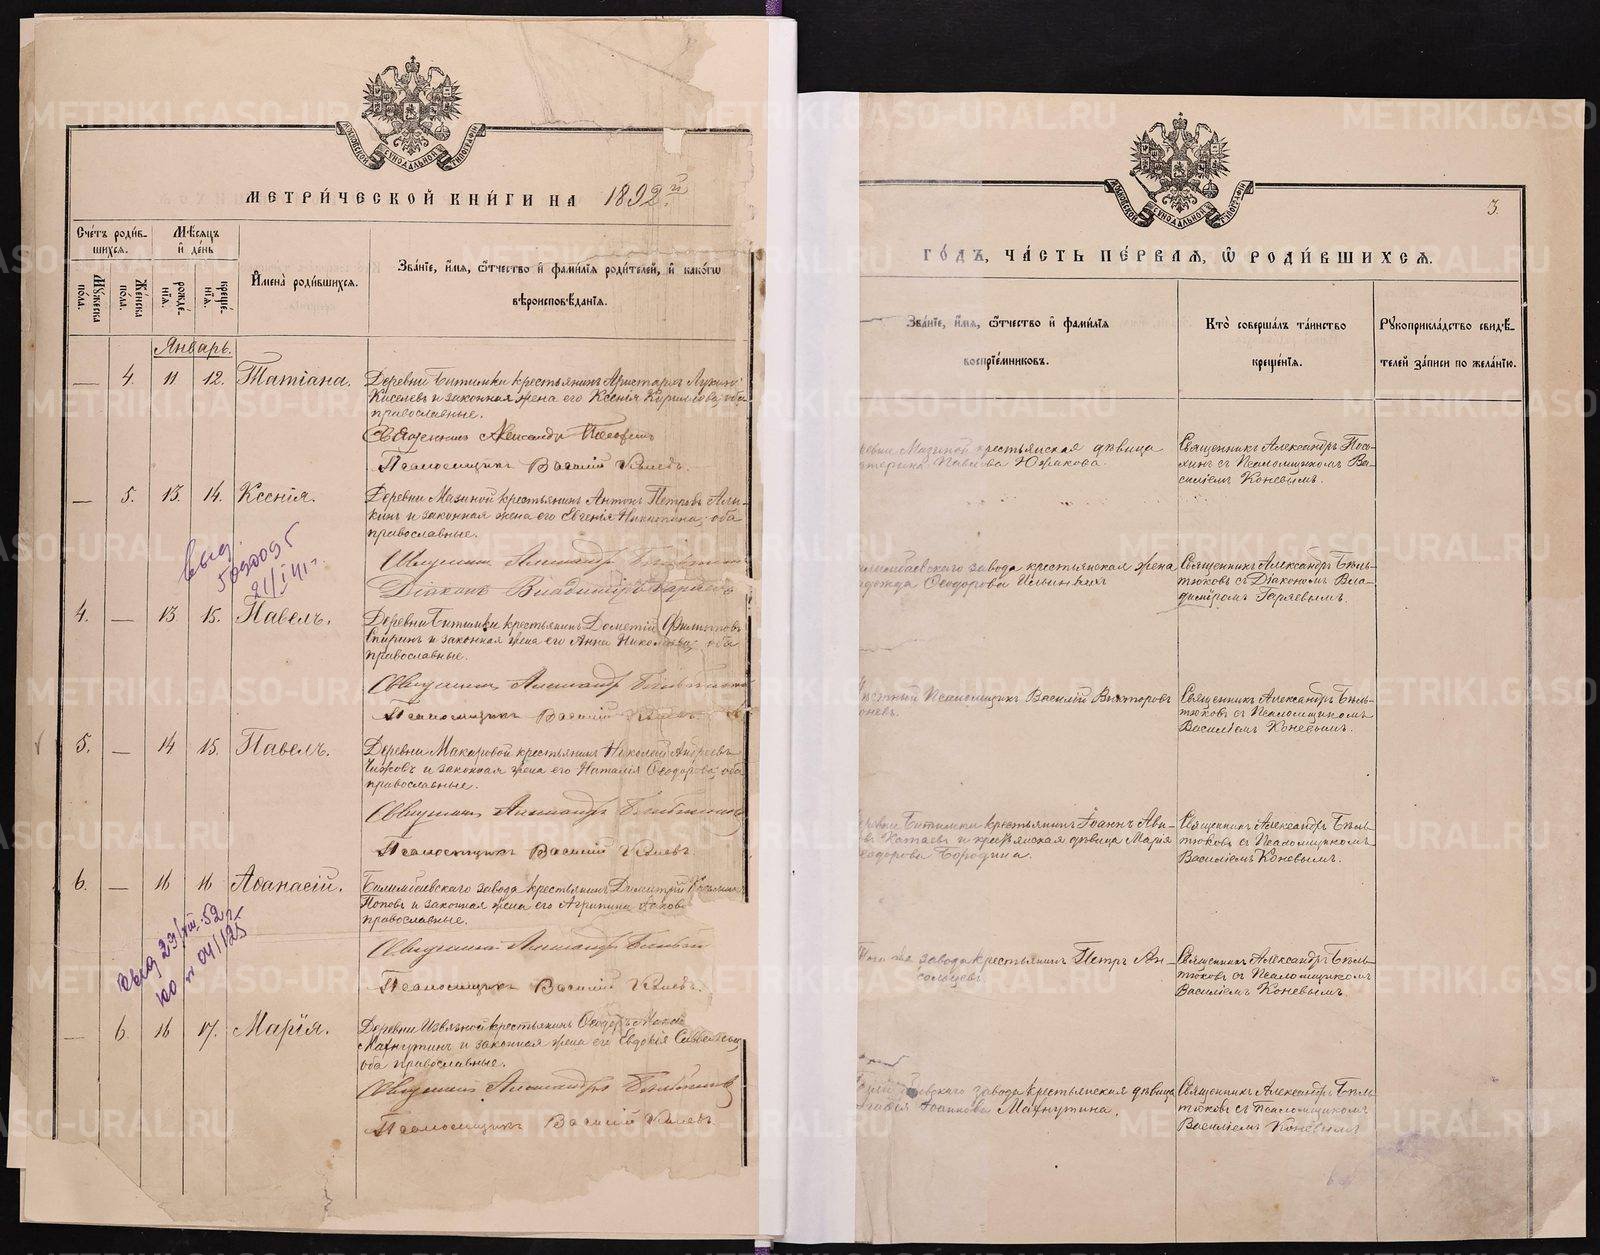 МОСКОВСКОЙ СѴНОДАЛЬНОЙ ТИПОГРАФІИ
МЕТРИ́ЧЕСКОЙ КНИ́ГИ НА 1892й
Сче́тъ роди́в-
шихся.
Мѣ́сяцъ
и҆ де́нь
Мꙋ́жеска
по́ла.
Же́нска
по́ла.
рожде́-
нїѧ.
креще́-
нїѧ.
И҆мена̀ роди́вшихсѧ.
Зва́нїе, и҆́мѧ, ѻ҆́тчество и҆ фами́лїѧ роди́телей, и҆ како́гѡ
вѣроисповѣ́данїѧ.
Январь.
— 4. 11 12. Татіана.
Деревни Битимки крестьянинъ Аристархъ Лукинъ
Киселевъ и законная жена его Ксенія Кириллова, оба
православные.
Священникъ Александръ
Псаломщикъ Василій Коневъ.
— 5. 13. 14. Ксенія.
Деревни Мазиной крестьянинъ Антонъ Петровъ Алы-
кинъ и законная жена его Евгенія Никитина, оба
православные.
Священникъ Александръ
Діаконъ Владиміръ Гаряевъ
выд.
4. — 13 15. Павелъ.
Деревни Битимки крестьянинъ Дометій Филипповъ
Спиринъ и законная жена его Анна Николаева, оба
православные.
Священникъ Александръ Бѣльтюковъ
Псаломщикъ Василій Коневъ
5. — 14 15. Павелъ.
Деревни Макаровой крестьянинъ Николай Андреевъ
Чижовъ и законная жена его Наталія Ѳеодорова, оба
православные.
Священникъ Александръ Бѣльтюковъ
Псаломщикъ Василій Коневъ.
6. — 16 16 Аѳанасій.
Билимбаевскаго завода крестьянинъ Димитрій
Поповъ и законная жена его Агрипина
православные.
Священникъ Александръ
Псаломщикъ Василій Коневъ.
выд 23/VIII-52 г.
— 6. 16 17. Марія.
Деревни Извязной крестьянинъ Ѳеодоръ
Махнутинъ и законная жена его Евдокія
оба православные.
Священникъ Александръ Бѣльтюковъ
Псаломщикъ Василій Коневъ.
МОСКОВСКОЙ СѴНОДАЛЬНОЙ ТИПОГРАФІИ
3.
ГО́ДЪ, ЧА́СТЬ ПЕ́РВАѦ, Ѡ҆ РОДИ́ВШИХСѦ.
Зва́нїе, и҆́мѧ, ѻ҆́тчество и҆ фами́лїѧ
воспрїе́мниковъ.
Кто̀ соверша́лъ та́инство
креще́нїѧ.
Рꙋкоприкла́дство свидѣ́-
телей за́писи по жела́нїю.
Мазиной крестьянская дѣвица
Павлова Южакова.
Священникъ Александръ Посо-
хинъ съ Псаломщикомъ Ва-
силіемъ Коневымъ.
завода крестьянская жена
Ѳеодорова Ильиныхъ
Священникъ Александръ Бѣль-
тюковъ съ Діакономъ Вла-
диміромъ Гаряевымъ.
Псаломщикъ Василій Викторовъ
Священникъ Александръ Бѣль-
тюковъ съ Псаломщикомъ
Василіемъ Коневымъ.
Битимки крестьянинъ Іоаннъ Ави-
Катаевъ и крестьянская дѣвица Марія
Бородина.
Священникъ Александръ Бѣль-
тюковъ съ Псаломщикомъ
Василіемъ Коневымъ.
завода крестьянинъ Петръ Ан-
Священникъ Александръ Бѣль-
тюковъ съ Псаломщикомъ
Василіемъ Коневымъ.
завода крестьянская дѣвица
Іоаннова Махнутина.
Священникъ Александръ Бѣль-
тюковъ съ Псаломщикомъ
Василіемъ Коневымъ
METRIKI.GASO-URAL.RU